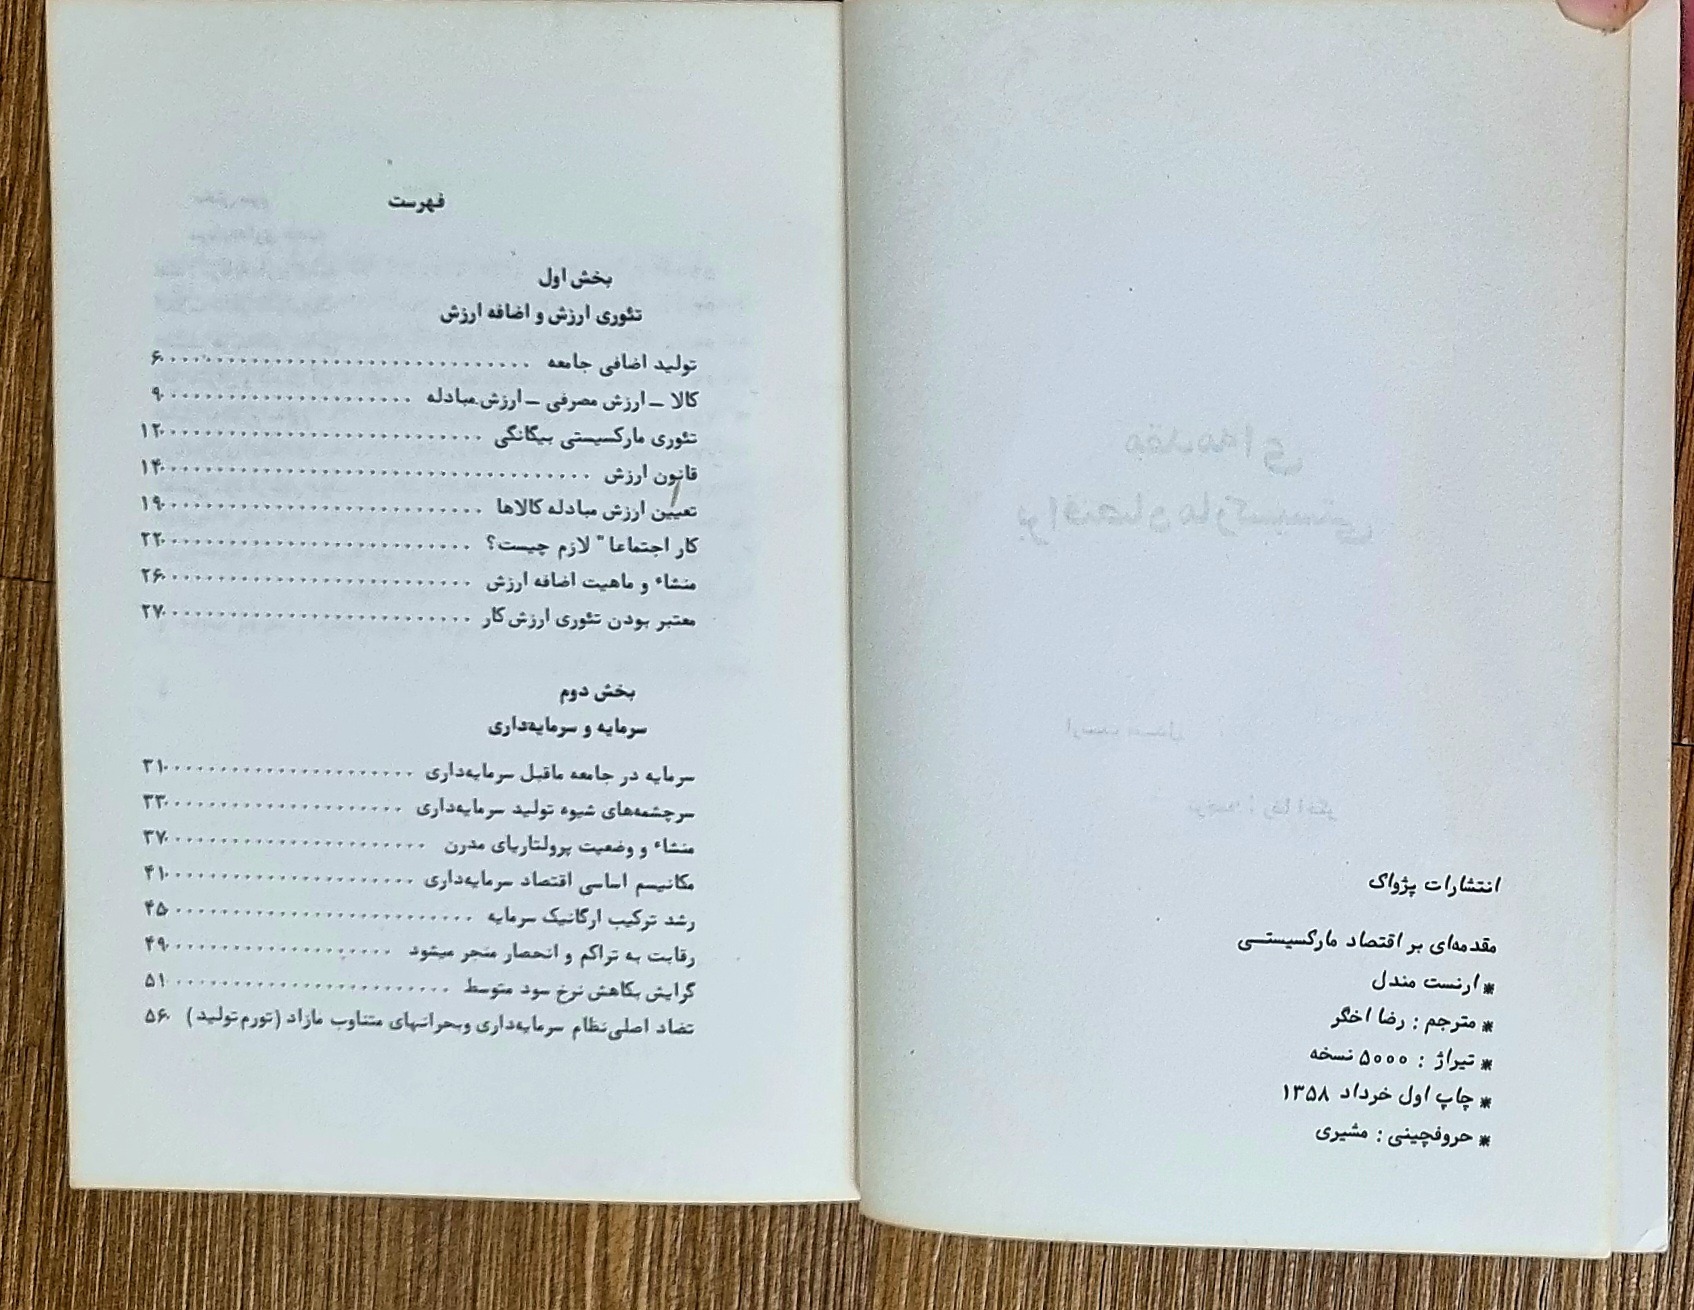 انتشارات پژواک
مقدمه‌ای بر اقتصاد مارکسیستی
* ارنست مندل
* مترجم : رضا اخگر
* تیراژ : ۵۰۰۰ نسخه
* چاپ اول خرداد ۱۳۵۸
* حروفچینی : مشیری
فهرست
بخش اول
تئوری ارزش و اضافه ارزش
تولید اضافی جامعه ۶
کالا – ارزش مصرفی – ارزش مبادله ۹
تئوری مارکسیستی بیگانگی ۱۲
قانون ارزش ۱۴
تعیین ارزش مبادله کالاها ۱۹
کار اجتماعا" لازم چیست؟ ۲۲
منشاء و ماهیت اضافه ارزش ۲۶
معتبر بودن تئوری ارزش کار ۲۷
بخش دوم
سرمایه و سرمایه‌داری
سرمایه در جامعه ماقبل سرمایه‌داری ۳۱
سرچشمه‌های شیوه تولید سرمایه‌داری ۳۳
منشاء و وضعیت پرولتاریای مدرن ۳۷
مکانیسم اساسی اقتصاد سرمایه‌داری ۴۱
رشد ترکیب ارگانیک سرمایه ۴۵
رقابت به تراکم و انحصار منجر میشود ۴۹
گرایش بکاهش نرخ سود متوسط ۵۱
تضاد اصلی نظام سرمایه‌داری وبحرانهای متناوب مازاد (تورم تولید) ۵۶